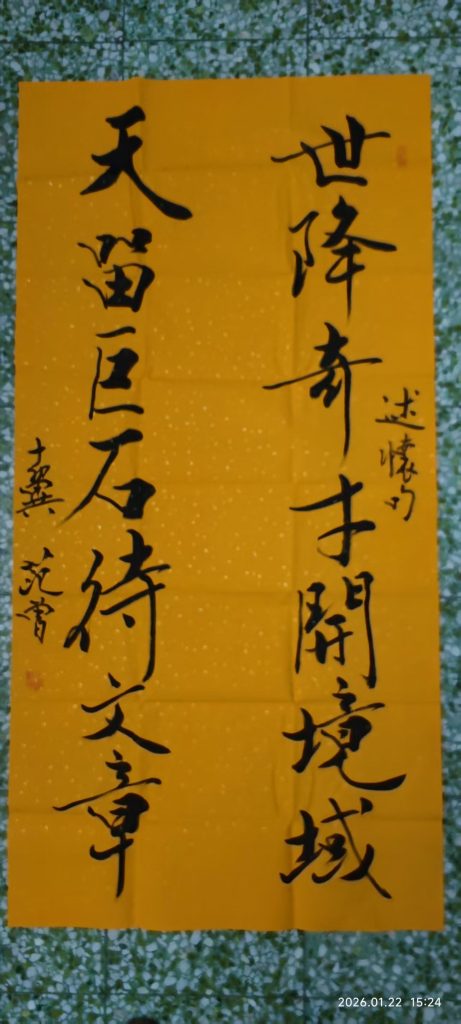 述懷句
世降奇才開境域
天留巨石待文章
十翼 范曾
2026.01.22 15:24